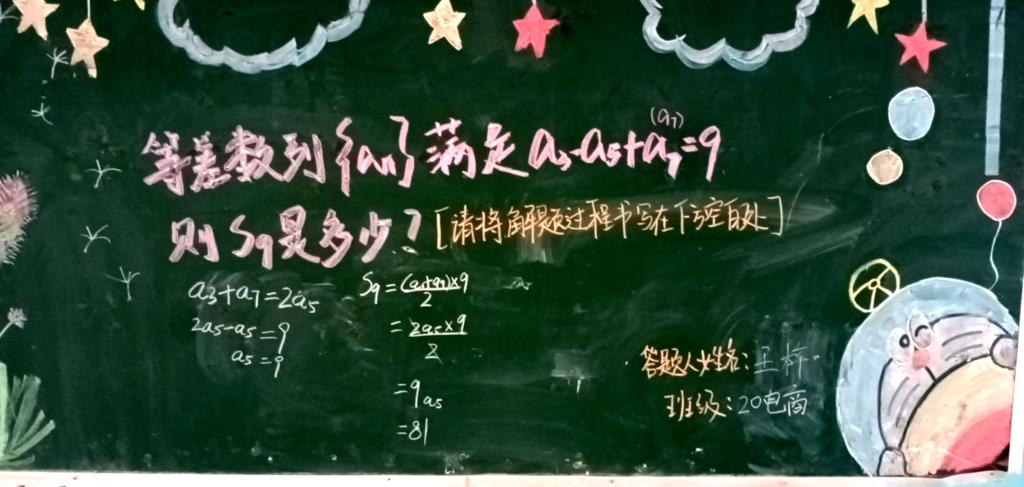 等差数列{an}满足a3-a5+a7=9
(a7)
则S9是多少?[请将解题过程书写在下方空白处]
a3+a7=2a5
2a5-a5=9
a5=9
S9=(a1+a9)×9/2
=2a5×9/2
=9a5
=81
答题人姓名:
班级:20电商